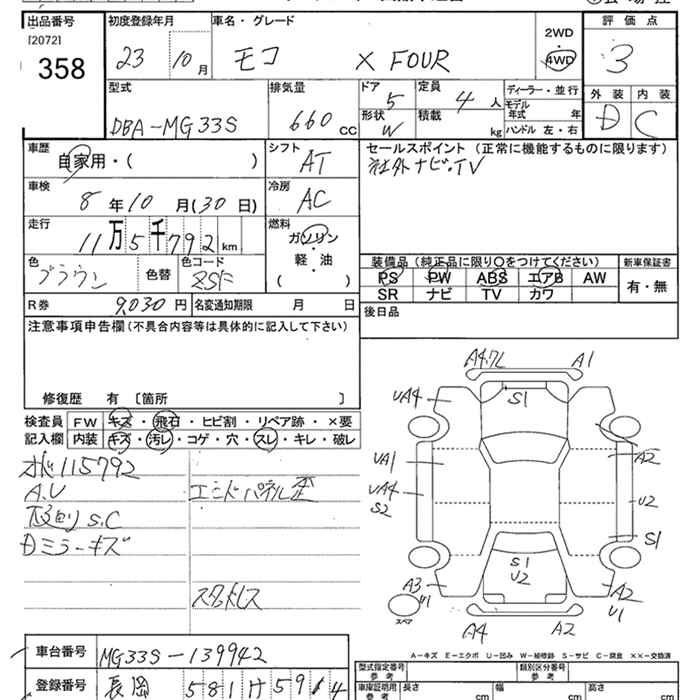 出品番号 初度登録年月 車名・グレード 評価点
[2072]
358 23 10月 モコ X FOUR 2WD 4WD 3
型式 排気量 ドア 定員 ディーラー・並行 外装 内装
DBA-MG33S 660 CC 5 4人 モデル年式 年 D C
形状 積載
W kg ハンドル 左・右
車歴 シフト セールスポイント (正常に機能するものに限ります)
自家用・( ) AT 社外ナビ・TV
車検 冷房
8年10月(30日) AC
走行 燃料
11万5千792km ガソリン
軽・油
( )
色 色替 色コード 装備品 (純正品に限り○をつけてください) 新車保証書
ブラウン ZSF PS PW ABS エアB AW 有・無
SR ナビ TV カワ
R券 9,030円 名変通知期限 月 日 後日品
注意事項申告欄(不具合内容等は具体的に記入して下さい)
修復歴 有 〔箇所 〕
検査員 FW キズ・飛石・ヒビ割・リペア跡・×要
記入欄 内装 キズ・汚レ・コゲ・穴・スレ・キレ・破レ
115792
A.U エンドパネル歪
S.C
Dミラーキズ
スタッドレス
A4.7L A1
UA4 S1
UA1 A2
UA4 S2 U2
S1
S1
U2
A3 U1 A2 U1
スペア
A4 A2
A-キズ E-エクボ U-凹み W-補修跡 S-サビ C-腐食 ××-交換済
車台番号 MG33S-139942 型式指定番号 参考 類別区分番号 参考
登録番号 長岡 581 サ 5914 車庫証明用 参考 長さ cm 幅 cm 高さ cm